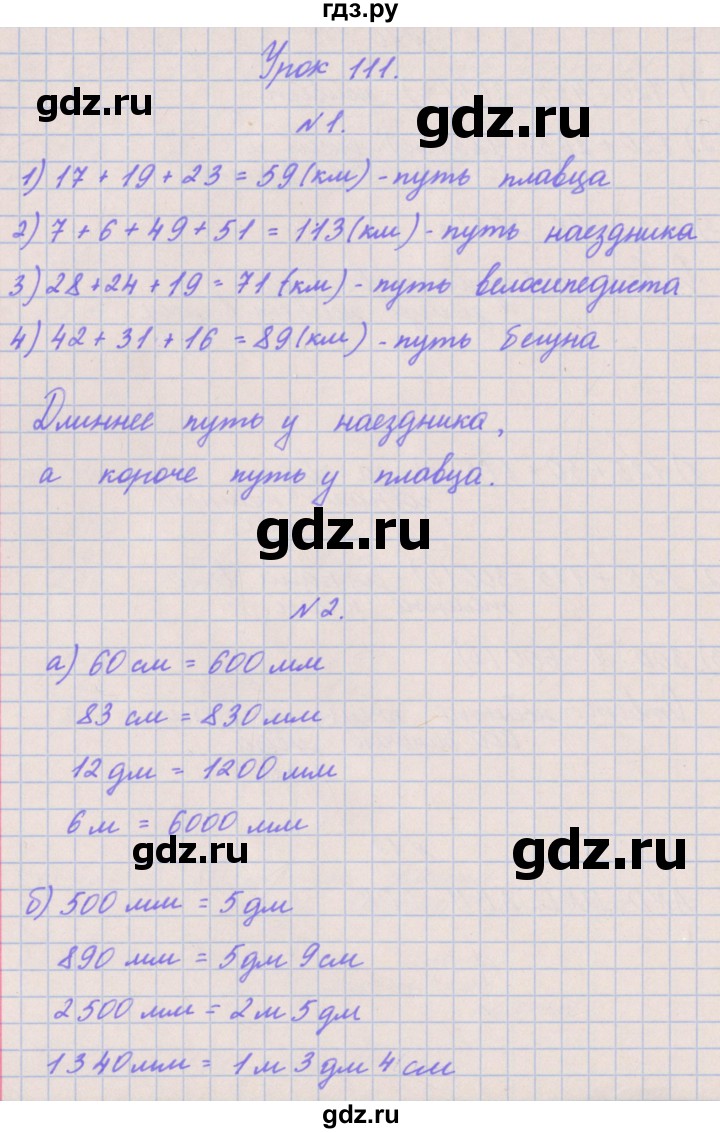 гдз.ру
Урок 111.
gdz.ru
gdz.ru
№1.
1) 17 + 19 + 23 = 59 (км) - путь плавца
2) 7 + 6 + 49 + 51 = 113 (км) - путь наездника
3) 28 + 24 + 19 = 71 (км) - путь велосипедиста
4) 42 + 31 + 16 = 89 (км) - путь бегуна
Длиннее путь у наездника,
а короче путь у плавца.
gdz.ru
№2.
а) 60 см = 600 мм
83 см = 830 мм
12 дм = 1200 мм
6 м = 6000 мм
gdz.ru
gdz.ru
б) 500 мм = 5 дм
890 мм = 5 дм 9 см
2500 мм = 2 м 5 дм
1340 мм = 1 м 3 дм 4 см
gdz.ru